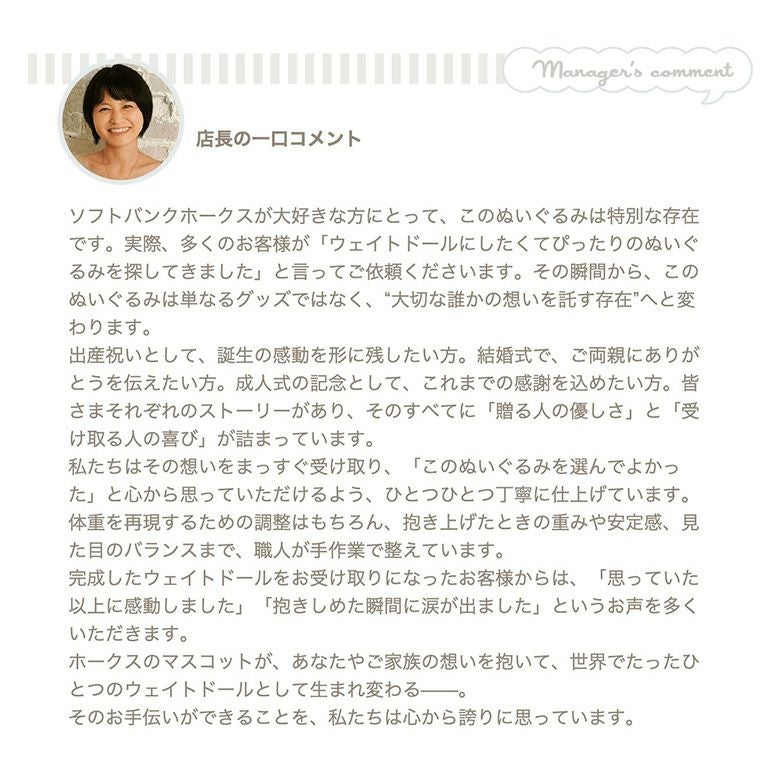 Manager's comment
店長の一口コメント
ソフトバンクホークスが大好きな方にとって、このぬいぐるみは特別な存在
です。実際、多くのお客様が「ウェイトドールにしたくてぴったりのぬいぐ
るみを探してきました」と言ってご依頼くださいます。その瞬間から、この
ぬいぐるみは単なるグッズではなく、“大切な誰かの想いを託す存在”へと変
わります。
出産祝いとして、誕生の感動を形に残したい方。結婚式で、ご両親にありが
とうを伝えたい方。成人式の記念として、これまでの感謝を込めたい方。皆
さまそれぞれのストーリーがあり、そのすべてに「贈る人の優しさ」と「受
け取る人の喜び」が詰まっています。
私たちはその想いをまっすぐ受け取り、「このぬいぐるみを選んでよかっ
た」と心から思っていただけるよう、ひとつひとつ丁寧に仕上げています。
体重を再現するための調整はもちろん、抱き上げたときの重みや安定感、見
た目のバランスまで、職人が手作業で整えています。
完成したウェイトドールをお受け取りになったお客様からは、「思っていた
以上に感動しました」「抱きしめた瞬間に涙が出ました」というお声を多く
いただきます。
ホークスのマスコットが、あなたやご家族の想いを抱いて、世界でたったひ
とつのウェイトドールとして生まれ変わる――。
そのお手伝いができることを、私たちは心から誇りに思っています。